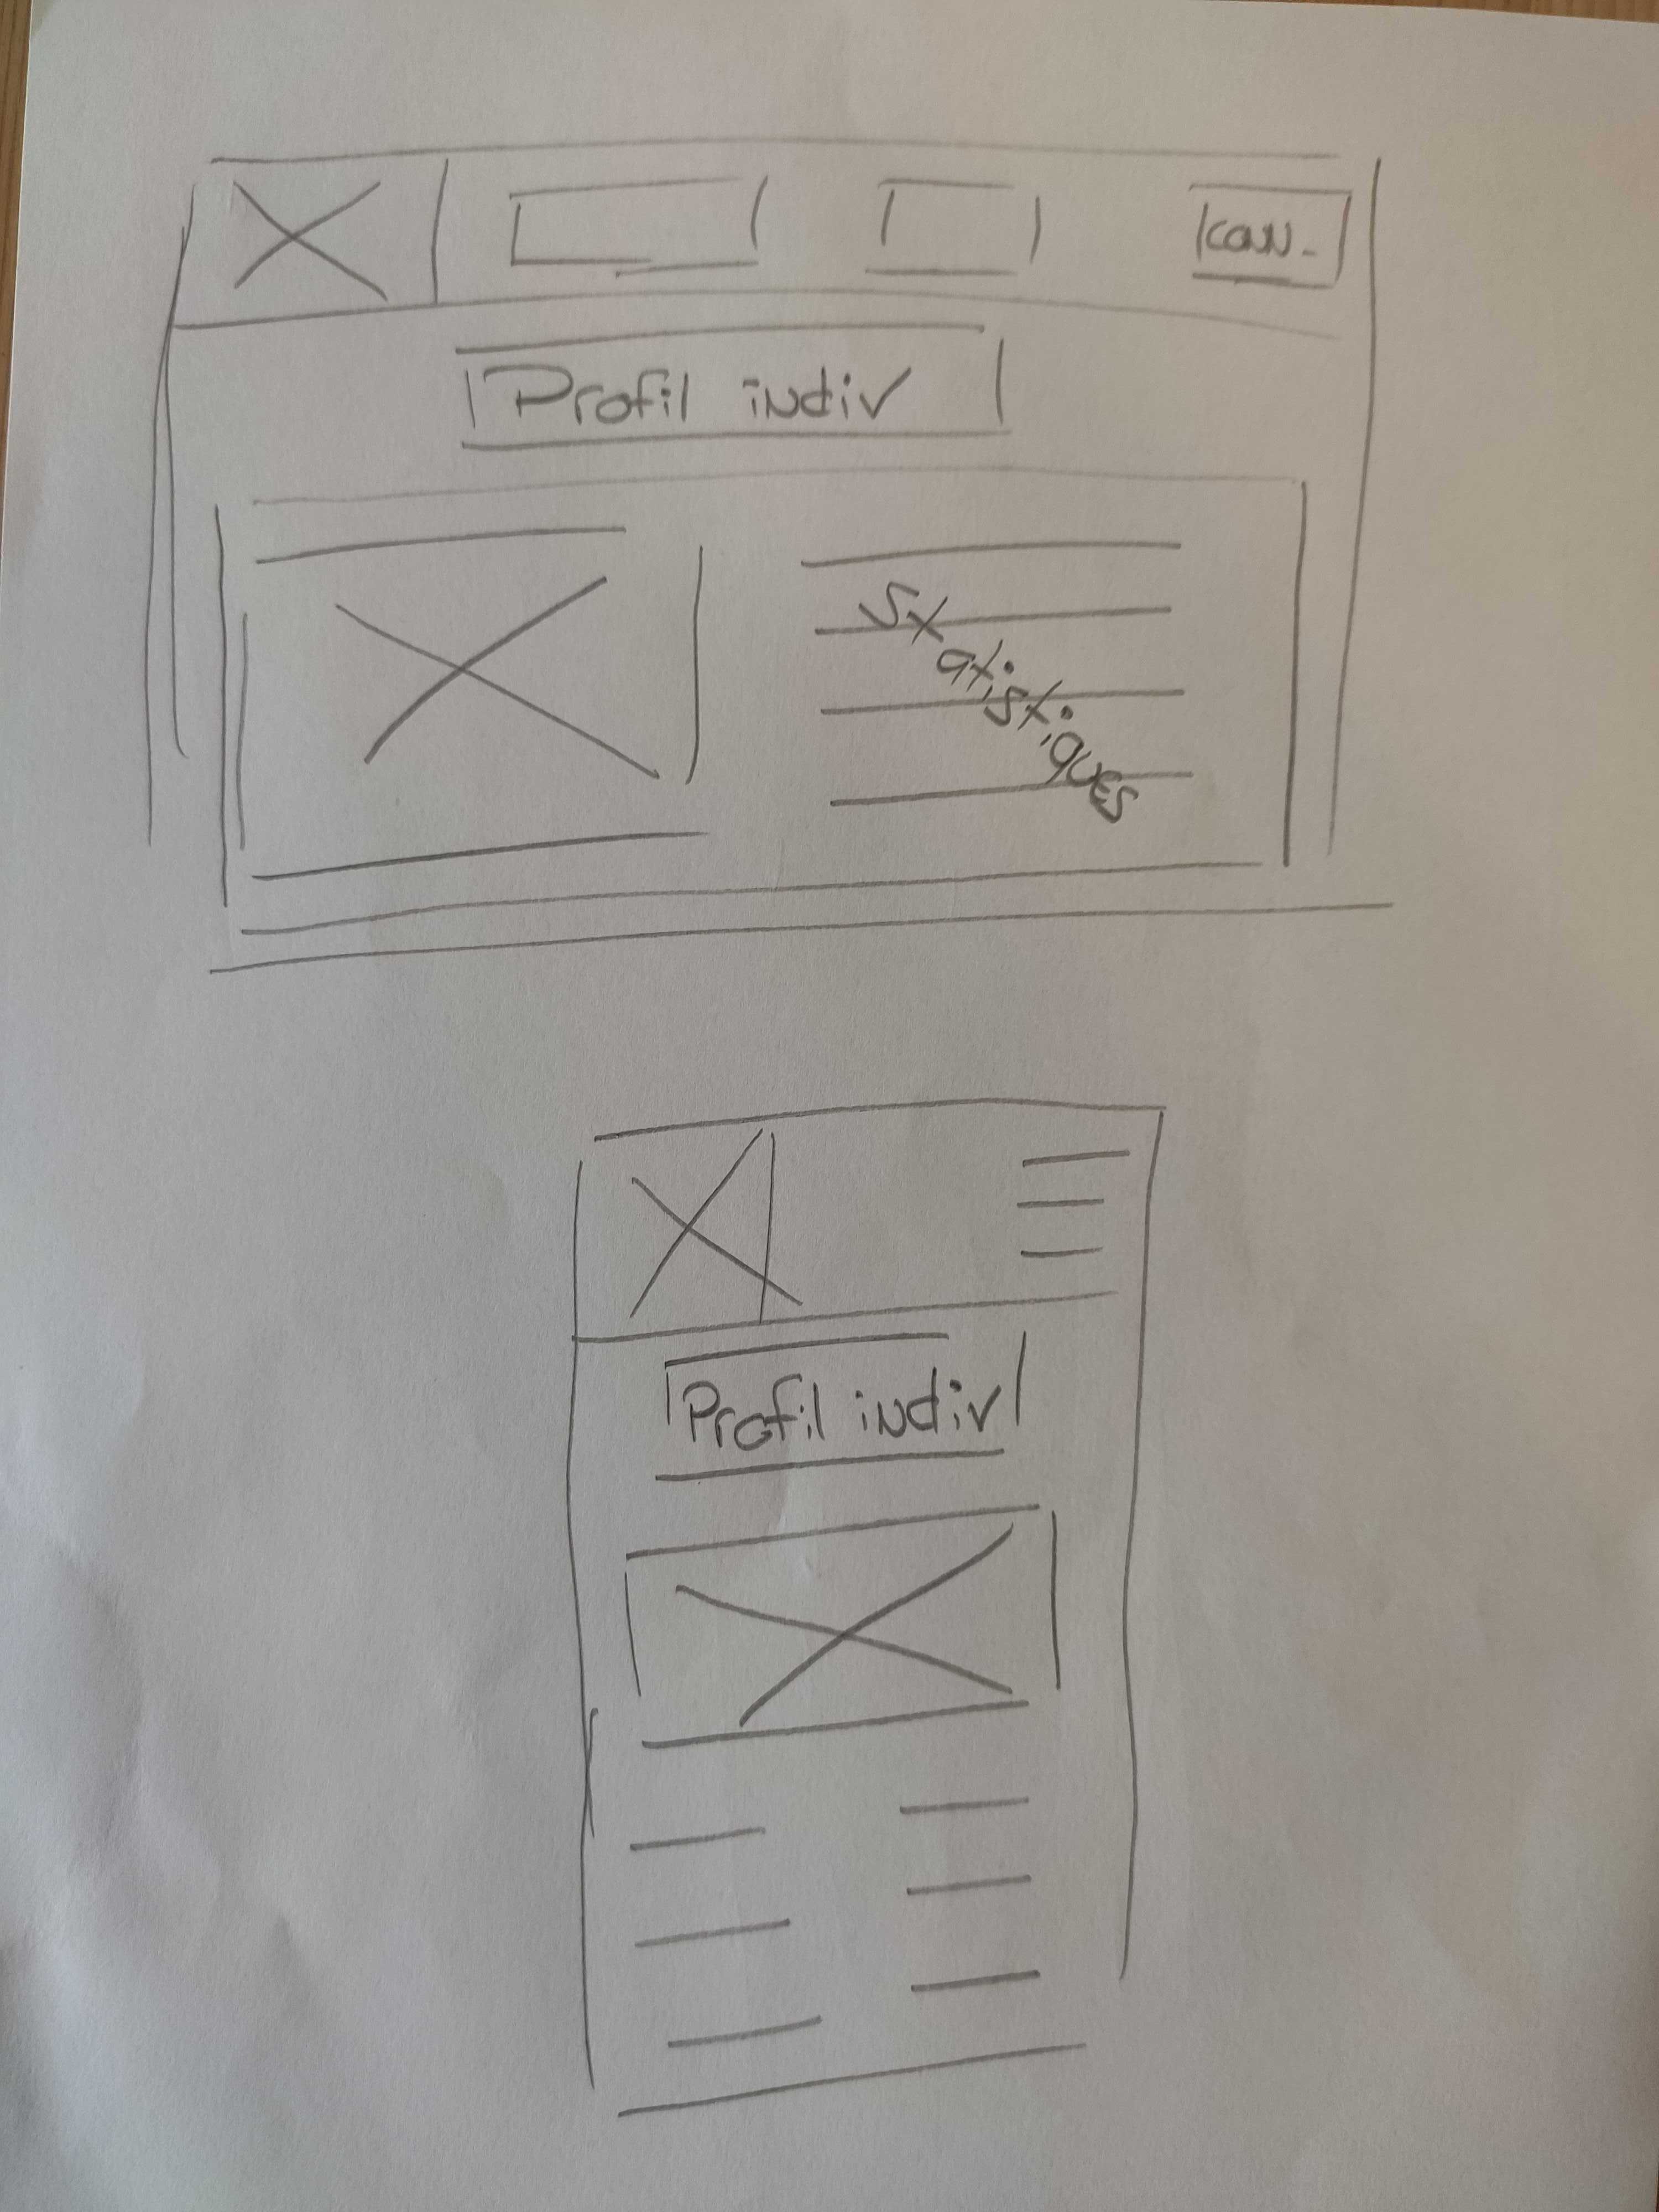 conn.
Profil indiv
Statistiques
Profil indiv